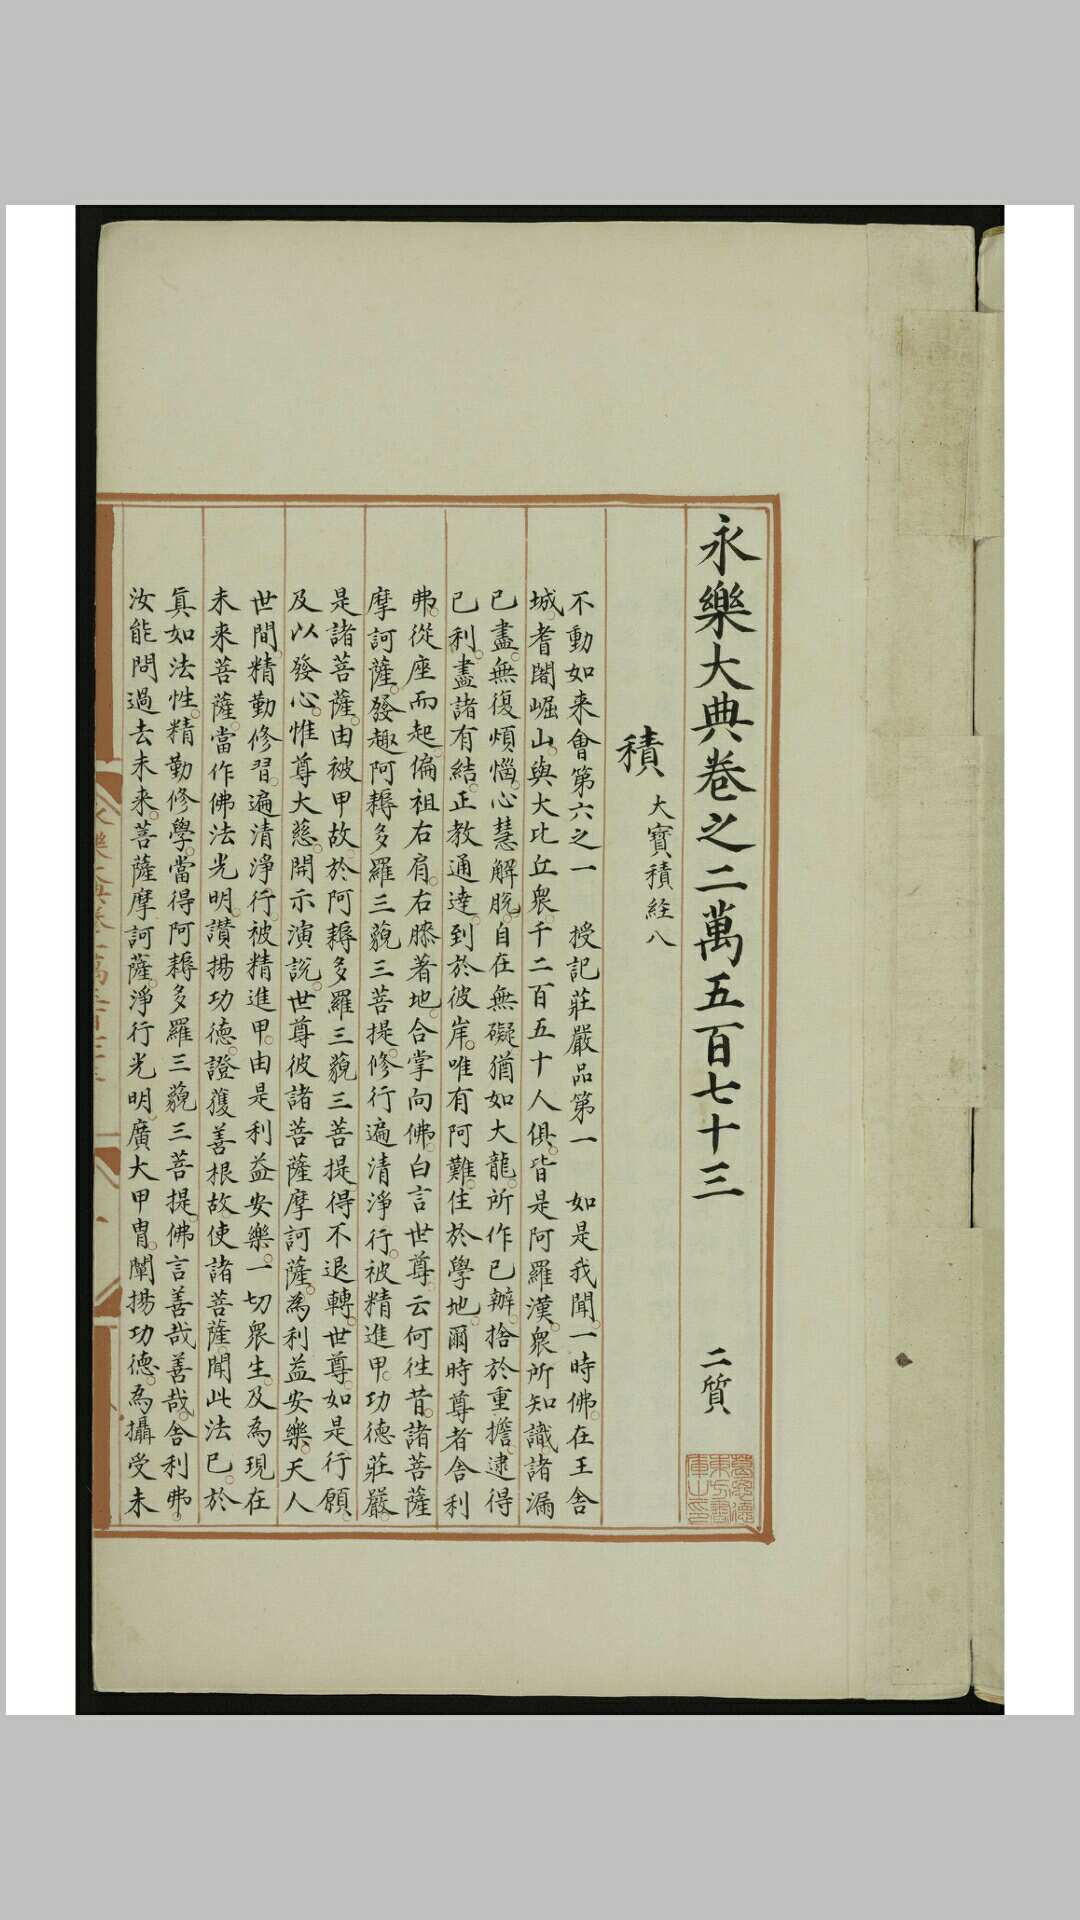 永樂大典卷之二萬五百七十三 二質
積 大寶積經八
不動如来會第六之一 授記莊嚴品第一 如是我聞一時佛在王舎
城耆闍崛山與大比丘衆千二百五十人俱皆是阿羅漢衆所知識諸漏
已盡無復煩惱心慧解脫自在無礙猶如大龍所作已辦捨於重擔逮得
已利盡諸有結正教通達到於彼岸唯有阿難住於學地爾時尊者舎利
弗從座而起偏袒右肩右膝著地合掌向佛白言世尊云何往昔諸菩薩
摩訶薩發趣阿耨多羅三藐三菩提修行遍清淨行被精進甲功德莊嚴
是諸菩薩由被甲故於阿耨多羅三藐三菩提得不退轉世尊如是行願
及以發心惟尊大慈開示演說世尊彼諸菩薩摩訶薩為利益安樂天人
世間精勤修習遍清淨行被精進甲由是利益安樂一切衆生及為現在
未来菩薩當作佛法光明讚揚功德證獲善根故使諸菩薩聞此法已於
真如法性精勤修學當得阿耨多羅三藐三菩提佛言善哉善哉舎利弗
汝能問過去未来菩薩摩訶薩淨行光明廣大甲冑闡揚功德為攝受未